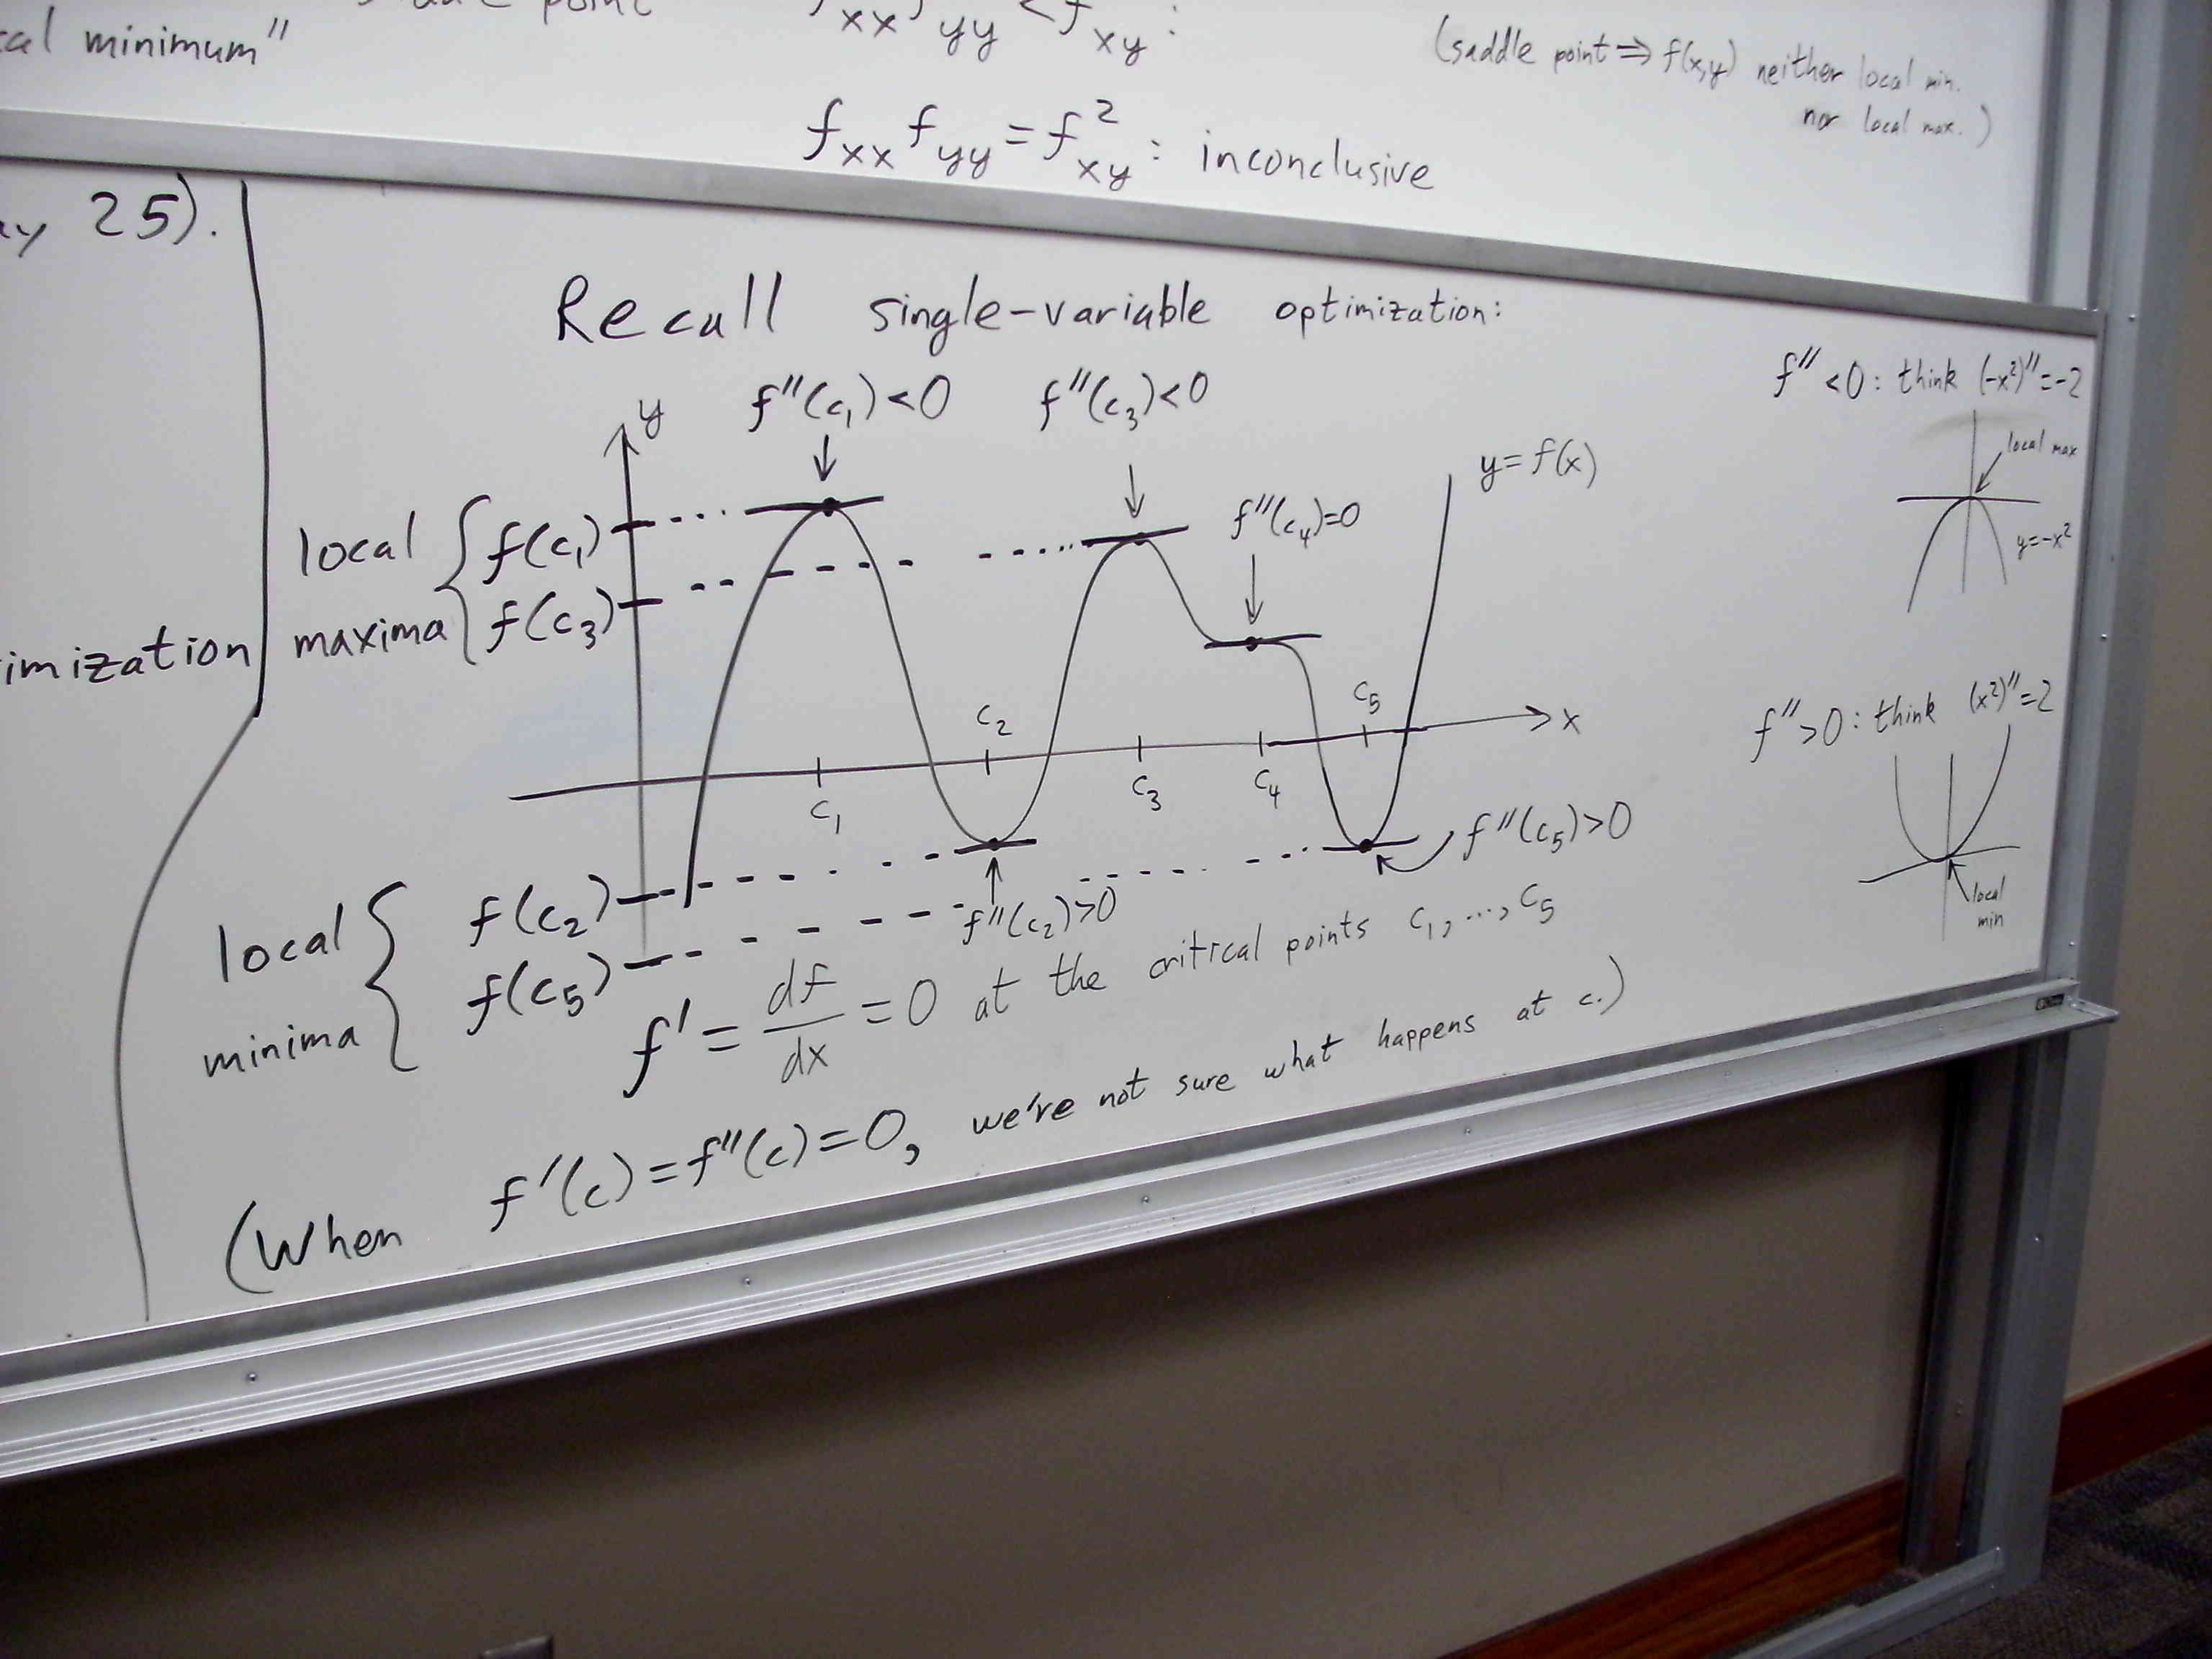 minimum"
point
xx yy < f xy :
(saddle point ⇒ f(x,y) neither local min.
nor local max.)
f_xx f_yy = f_xy^2 : inconclusive
25).
Recall single-variable optimization:
f''(c_1)<0
f''(c_3)<0
y
y=f(x)
f''(c_4)=0
local maxima { f(c_1)
f(c_3)
c_1
c_2
c_3
c_4
c_5
x
local minima { f(c_2)
f(c_5)
f''(c_2)>0
f''(c_5)>0
f' = df/dx = 0 at the critical points c_1, ..., c_5
(When f'(c)=f''(c)=0, we're not sure what happens at c.)
f''<0: think (-x^2)''=-2
local max
y=-x^2
f''>0: think (x^2)''=2
local
min